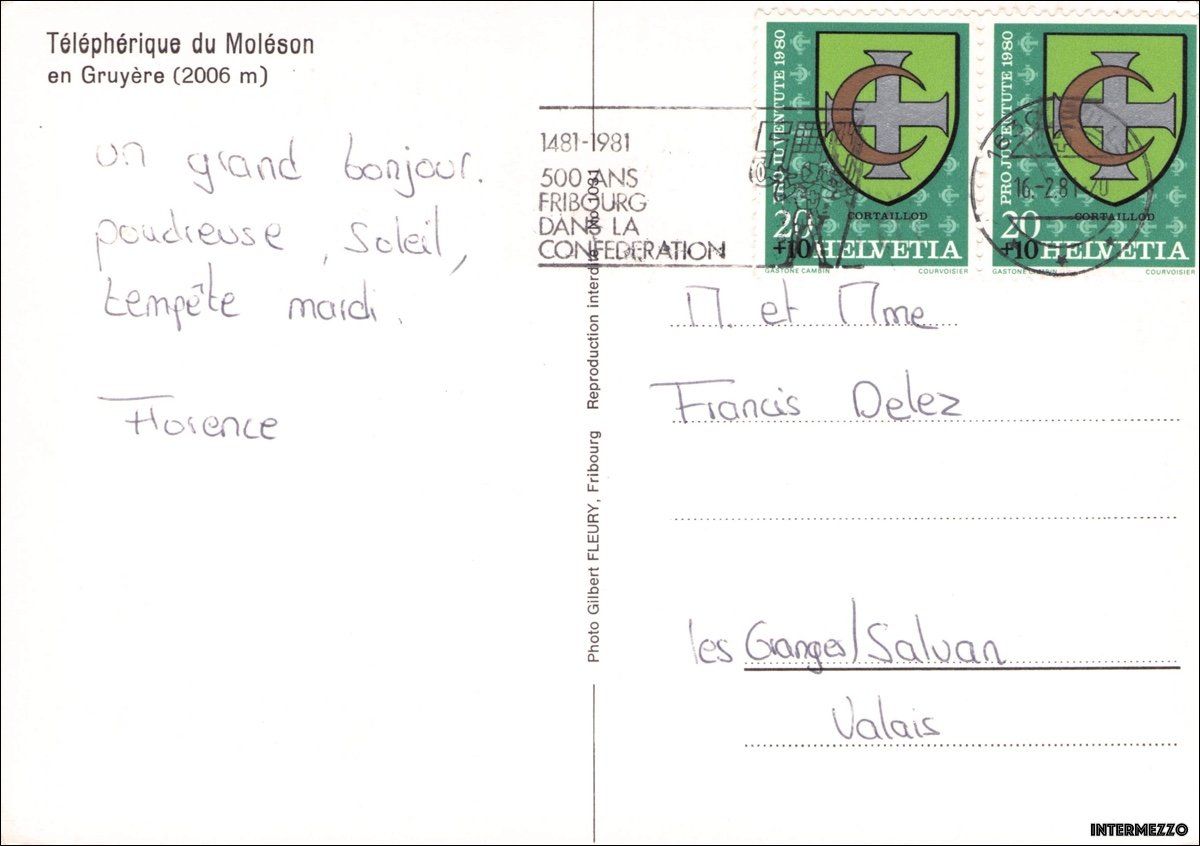 Téléphérique du Moléson
en Gruyère (2006 m)
un grand bonjour.
poudreuse, Soleil,
tempête mardi.
Florence
Photo Gilbert FLEURY, Fribourg Reproduction interdite
1481-1981
500 ANS
FRIBOURG
DANS LA
CONFEDERATION
PRO JUVENTUTE 1980
CORTAILLOD
20
+10 HELVETIA
GASTONE CAMBIN COURVOISIER
PRO JUVENTUTE 1980
CORTAILLOD
20
+10 HELVETIA
GASTONE CAMBIN COURVOISIER
16.-2.81
M. et Mme
Francis Delez
les Granges/Salvan
Valais
INTERMEZZO